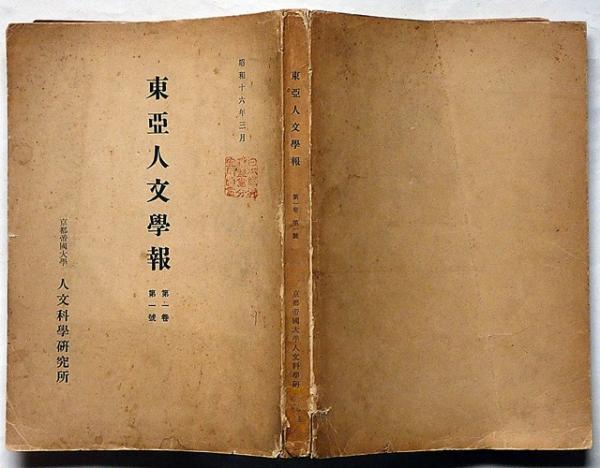 昭和十六年三月
東亞人文學報
第一卷
第一號
京都帝國大學
人文科學研究所
東亞人文學報
第一卷 第一號
京都帝國大學人文科學研